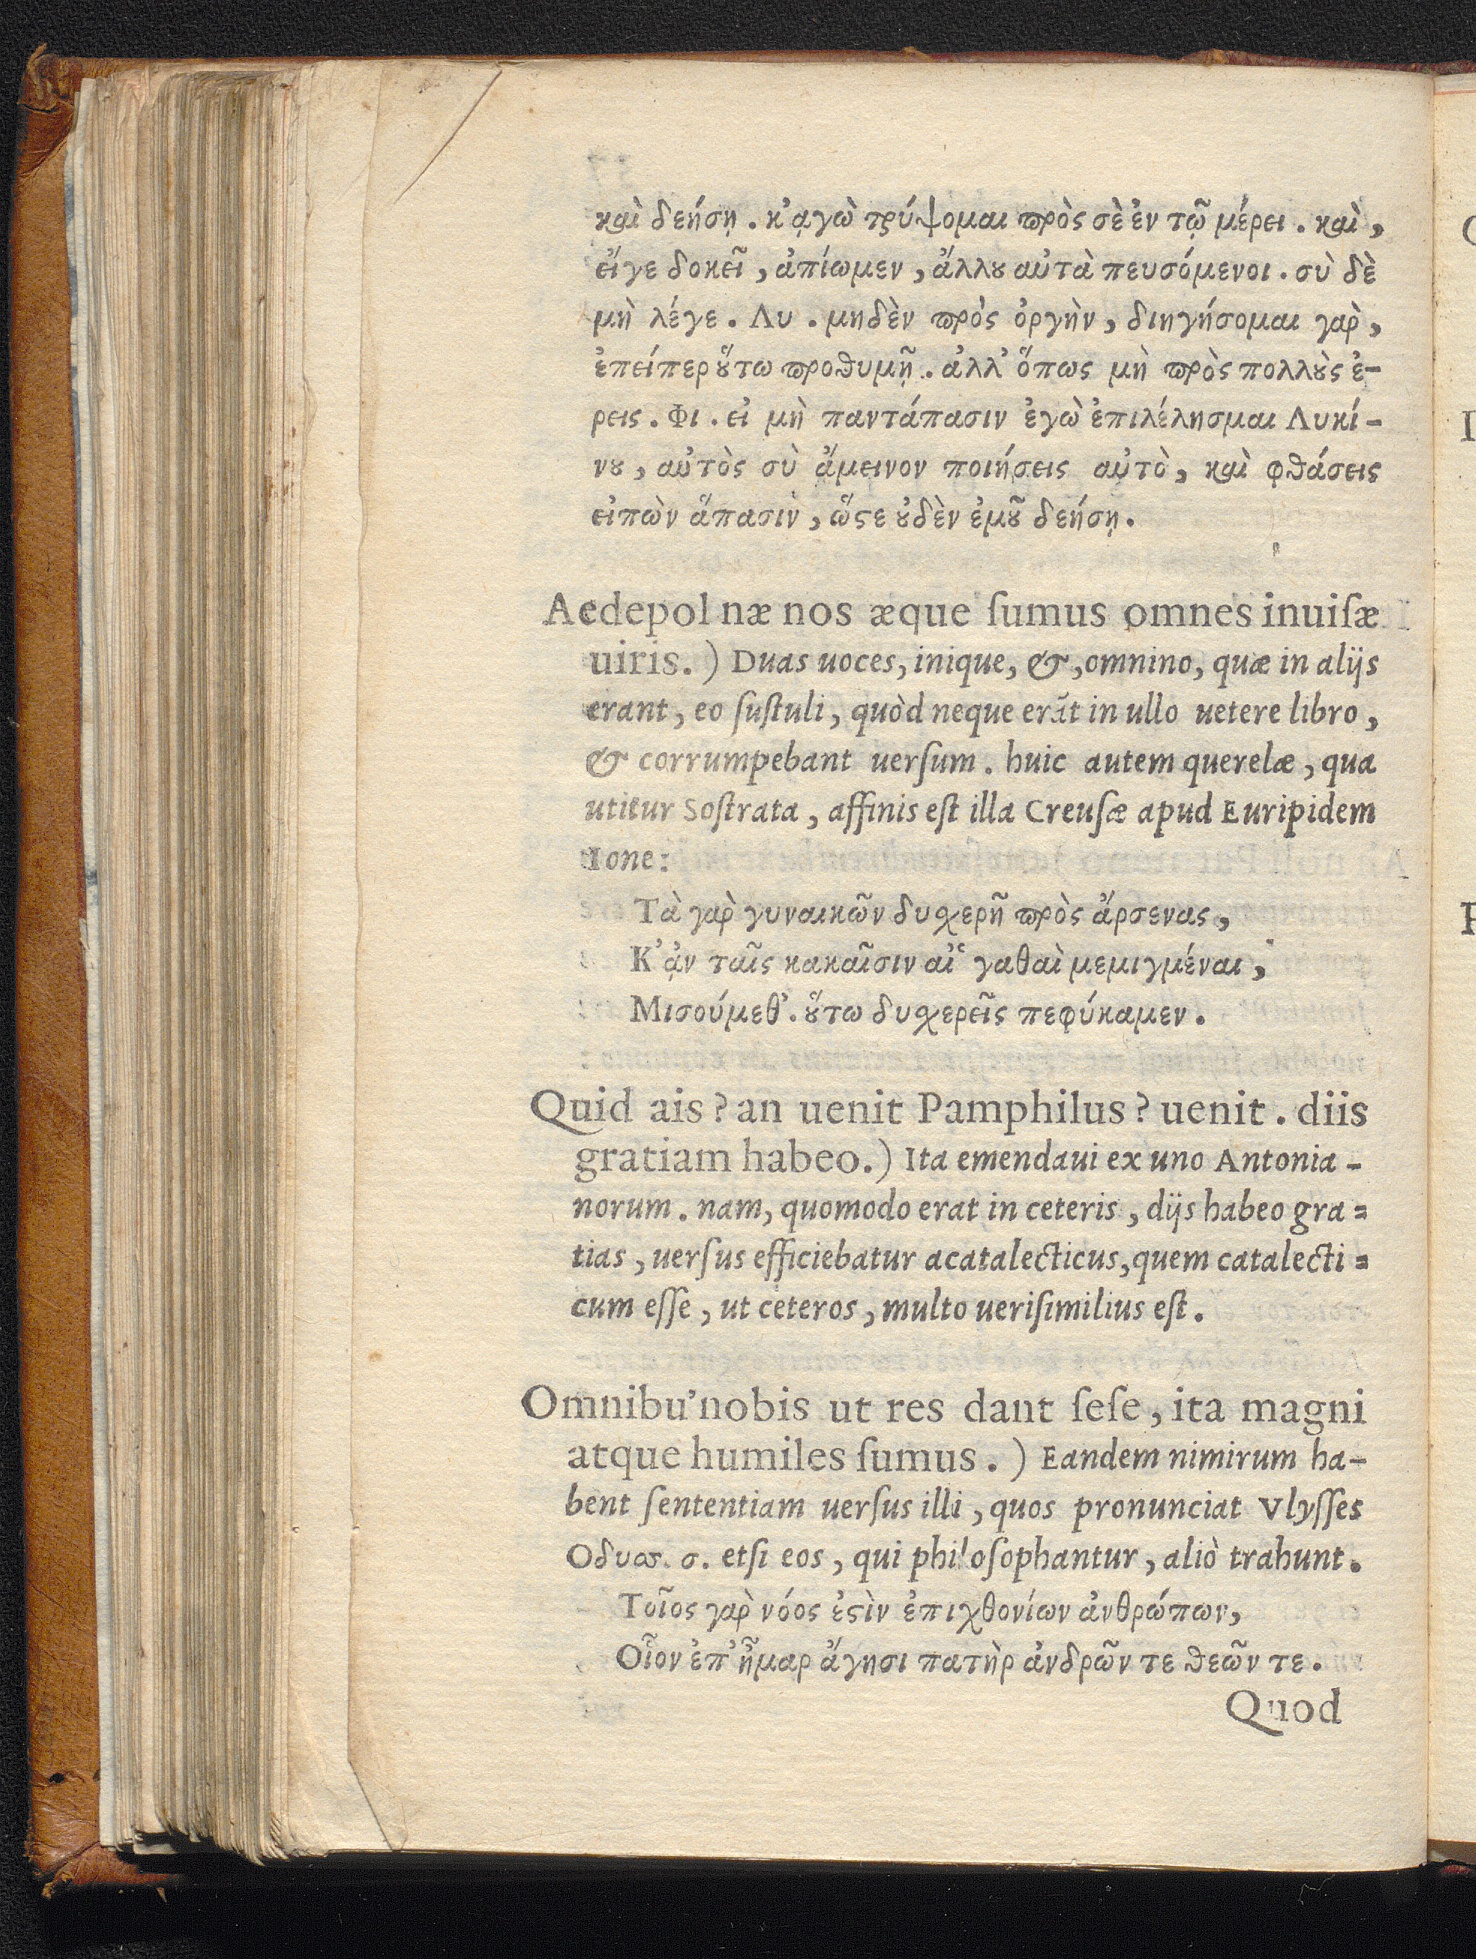 καὶ δεήσῃ. κ᾿ᾳγὼ τρύψομαι πρὸς σὲ ἐν τῷ μέρει. καὶ,
εἴγε δοκεῖ, ἀπίωμεν, ἄλλȣ αὐτὰ πευσόμενοι. σὺ δὲ
μὴ λέγε. Λυ. μηδὲν πρὸς ὀργὴν, διηγήσομαι γαρ̀,
ἐπείπερ ȣ̔́τω προθυμῇ. ἀλλ᾿ ὅπως μὴ πρὸς πολλȣ̀ς ἐ-
ρεις. Φι. εἰ μὴ παντάπασιν ἐγὼ ἐπιλέλησμαι Λυκί-
νȣ, αὐτὸς σὺ ἄμεινον ποιήσεις αὐτὸ, καὶ φθάσεις
εἰπὼν ἅπασιν, ὥϛε ȣ̓δὲν ἐμȣ͂ δεήσῃ.
Aedepol næ nos æque ſumus omnes inuiſæ
uiris.) Duas uoces, inique, &, omnino, quæ in alijs
erant, eo ſuſtuli, quòd neque erãt in ullo uetere libro,
& corrumpebant uerſum. huic autem querelæ, qua
utitur Soſtrata, affinis eſt illa Creuſæ apud Euripidem
Ione:
Τὰ γαρ̀ γυναικῶν δυχερῆ πρὸς ἄρσενας,
Κ᾿ᾀν ταῖς κακαῖσιν αἱ᾿ γαθαὶ μεμιγμέναι,
Μισούμεθ᾿. ȣ̔́τω δυχερεῖς πεφύκαμεν.
Quid ais? an uenit Pamphilus? uenit. diis
gratiam habeo.) Ita emendaui ex uno Antonia-
norum. nam, quomodo erat in ceteris, dijs habeo gra=
tias, uerſus efficiebatur acatalecticus, quem catalecti=
cum eſſe, ut ceteros, multo ueriſimilius eſt.
Omnibu' nobis ut res dant ſeſe, ita magni
atque humiles ſumus.) Eandem nimirum ha-
bent ſententiam uerſus illi, quos pronunciat Vlyſſes
Οδυσσ. σ. etſi eos, qui philoſophantur, aliò trahunt.
Τοῖος γαρ̀ νόος ἐϛὶν ἐπιχθονίων ἀνθρώπων,
Οἷον ἐπ᾿ ἦμαρ ἄγησι πατὴρ ἀνδρῶν τε θεῶν τε.
Quod